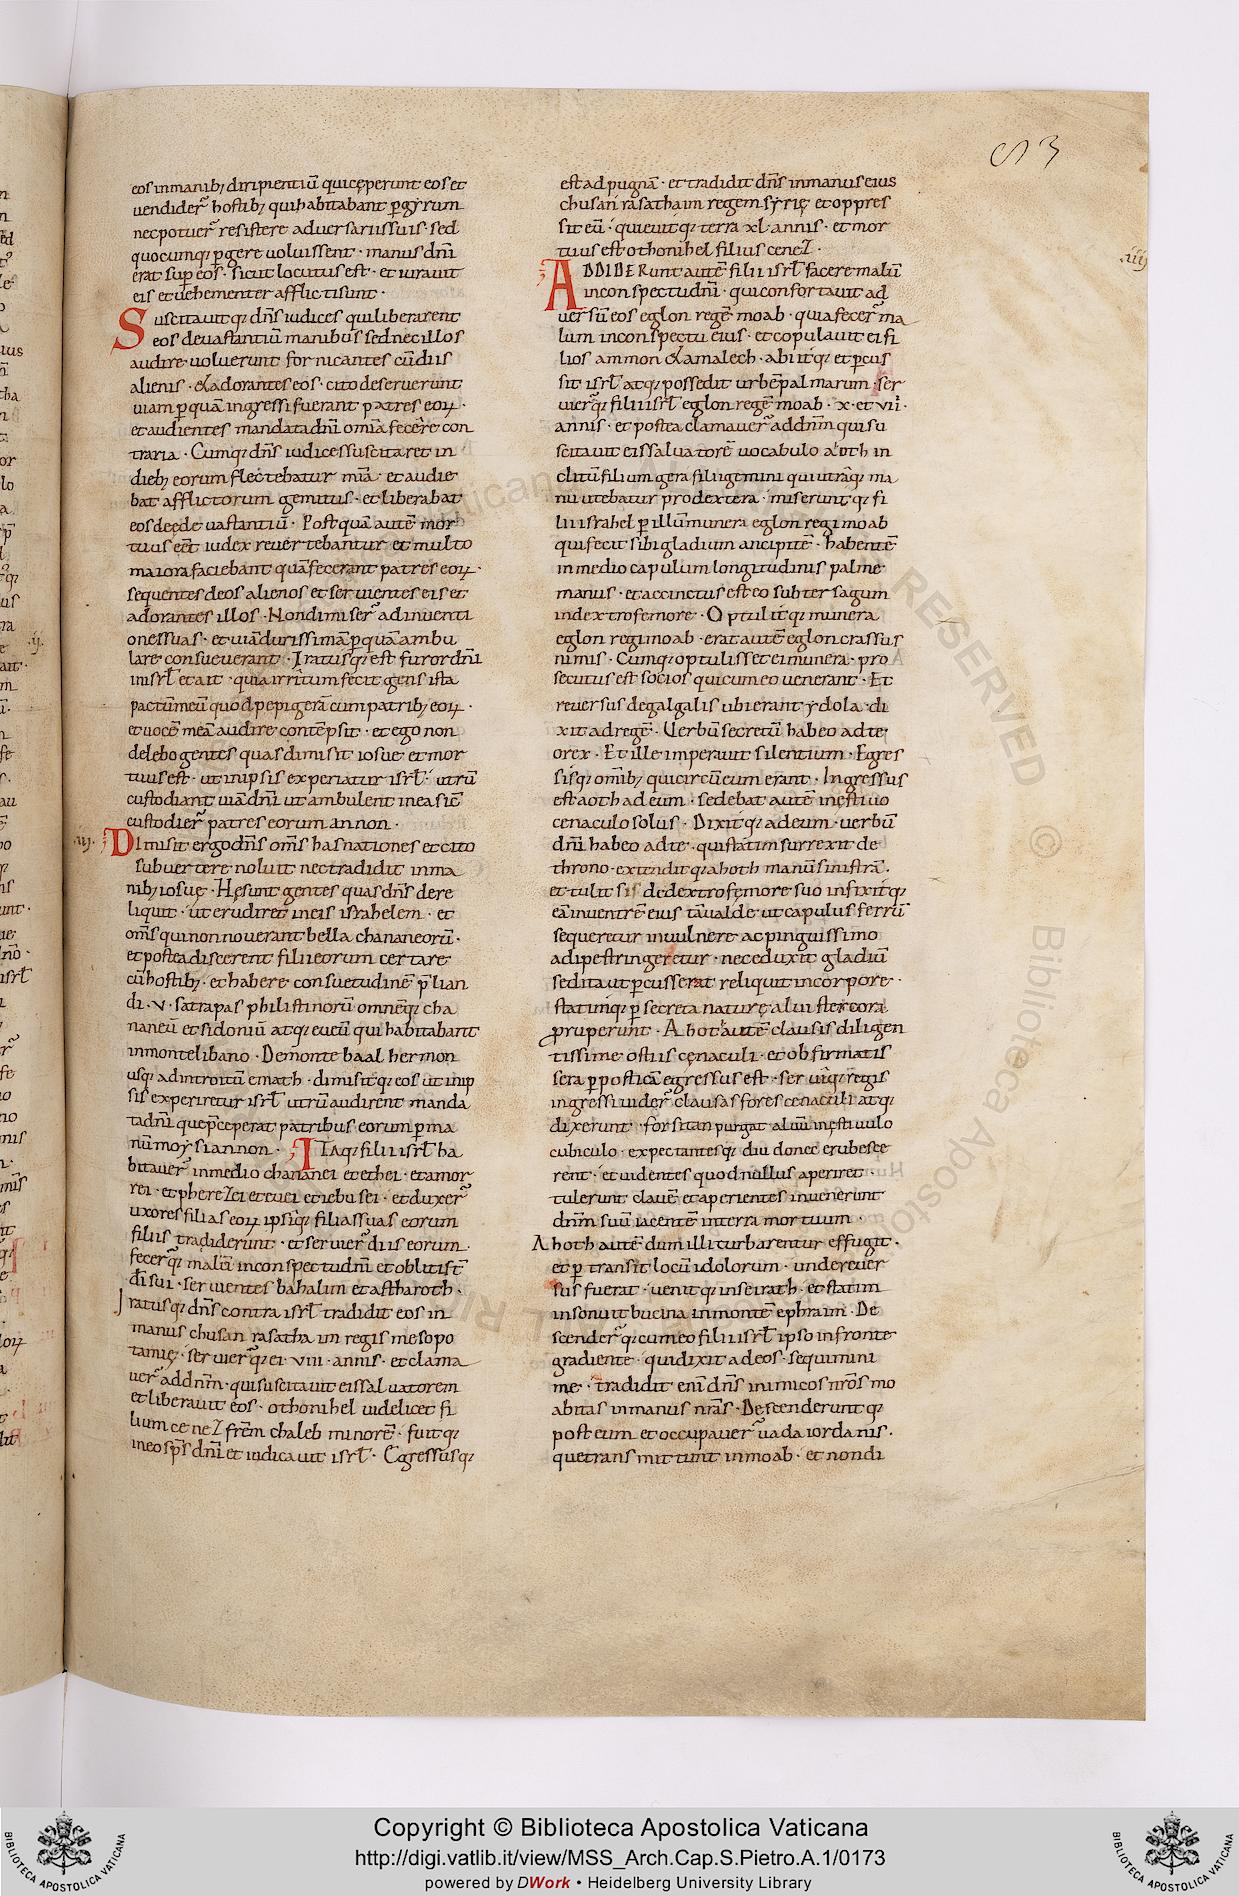 eos inmanib; diripientiũ quicęperunt eos et
uendider̃ hostib; quihabitabant pgyrum
necpotuer̃ resistere aduersariissuis · sed
quocumq; pgere uoluissent · manus dñi
erat sup eos · sicut locutus est · et iurauit
eis et uehementer afflicti sunt ·
Suscitauitq; dñs iudices qui liberarent
eos deuastantiũ manibus sed nec illos
audire uoluerunt fornicantes cũ diis
alienis · & adorantes eos · cito deseruerunt
uiam p quã ingressi fuerant patres eoꝝ ·
et audientes mandata dñi omĩa fecere con
traria · Cumq; dñs iudices suscitaret in
dieb; eorum flectebatur mĩa · et audie
bat afflictorum gemitus · et liberabat
eos decęde uastantiũ · Post quã autẽ mor
tuus eẽt iudex reuertebantur et multo
maiora faciebant quã fecerant patres eoꝝ ·
sequentes deos alienos et seruientes eis et
adorantes illos · Non dimiser̃ adinuenti
ones suas · et uiã durissimã p quã ambu
lare consueuerant · Iratusq; est furor dñi
in isrł et ait · quia irritum fecit gens ista
pactũ meũ quod pepigerã cum patrib; eoꝝ ·
et uocẽ meã audire contẽpsit · et ego non
delebo gentes quas dimisit iosue et mor
tuus est · ut in ipsis experiatur isrł · utrũ
custodiant uiã dñi ut ambulent in ea sic̃
custodier̃ patres eorum an non ·
·iii· Dimisit ergo dñs om̃s has nationes et cito
subuertere noluit nec tradidit inma
nib; iosuę · Hę sunt gentes quas dñs dere
liquit · ut erudiret in eis israhelem · et
om̃s qui non nouerant bella chananeorũ ·
et postea discerent filii eorum certare
cũ hostib; · et habere consuetudinẽ p̃lian
di · v · satrapas philistinorũ omnẽq; cha
naneũ et sidoniũ atq; eueũ qui habitabant
inmonte libano · De monte baal hermon
usq; ad introitũ emath · dimisitq; eos ut in ip
sis experiretur isrł utrũ audirent manda
ta dñi que p̃ceperat patribus eorum p ma
nũ moysi an non · ITAq; filii isrł ha
bitauer̃ in medio chananei et ethei · et amor
rei · et pherezei et euei et iebusei · et duxer̃
uxores filias eoꝝ ipsiq; filias suas eorum
filiis tradiderunt · et seruier̃ diis eorum ·
fecer̃q; malũ in conspectu dñi et obliti st̃
dĩ sui · seruientes bahalim et astharoth ·
Iratusq; dñs contra isrł tradidit eos in
manus chusan rasathaim regis mesopo
tamię · seruier̃q; ei · viii · annis · et clama
uer̃ ad dnm̃ · qui suscitauit eis saluatorem
et liberauit eos · othonihel uidelicet fi
lium cenez fr̃em chaleb minorẽ · fuitq;
in eo sp̃s dñi et iudicauit isrł · Egressusq;
est ad pugnã · et tradidit dñs inmanus eius
chusan rasathaim regem syrię et oppres
sit eũ · quieuitq; terra xl · annis · et mor
tuus est othonihel filius cenez ·
ADDIDERunt autẽ filii isrł facere malũ
in conspectu dñi · qui confortauit ad
uersũ eos eglon regẽ moab · quia fecer̃ ma
lum in conspectu eius · et copulauit ei fi
lios ammon & amalech · abiitq; et pcus
sit isrł atq; possedit urbẽ palmarum · ser
uier̃q; filii isrł eglon regẽ moab · x · et viii ·
annis · et postea clamauer̃ ad dnm̃ qui su
scitauit eis saluatorẽ uocabulo aoth in
clitũ filium gera filii gemini qui utraq; ma
nu utebatur pro dextera · miseruntq; fi
lii israhel p illũ munera eglon regi moab
qui fecit sibi gladium ancipitẽ · habentẽ
in medio capulum longitudinis palme
manus · et accinctus est eo subter sagum
in dextro femore · Optulitq; munera
eglon regi moab · erat autẽ eglon crassus
nimis · Cumq; optulisset ei munera · pro
secutus est socios qui cum eo uenerant · Et
reuersus de galgalis ubi erant ydola · di
xit ad regẽ · Verbũ secretũ habeo ad te
o rex · Et ille imperauit silentium · Egres
sisq; omĩb; qui circũ eum erant · Ingressus
est aoth ad eum · sedebat autẽ in ęstiuo
cenaculo solus · Dixitq; ad eum · uerbũ
dñi habeo ad te · qui statim surrexit de
throno · extenditq; ahoth manũ sinistrã ·
et tulit sis de dextro femore suo infixitq;
eã in uentrẽ eius tã ualde ut capulus ferrũ
sequeretur in uulnere ac pinguissimo
adipe stringeretur · nec eduxit gladiũ
sed ita ut pcusserat reliquit incorpore ·
statimq; p secreta naturę alui stercora
pruperunt · Ahot autẽ clausis diligen
tissime ostiis cęnaculi · et obfirmatis
sera p posticã egressus est · seruiq; regis
ingressi uider̃ clausas fores cenaculi atq;
dixerunt · forsitan purgat aluũ in ęstiuulo
cubiculo · expectantesq; diu donec erubesce
rent · et uidentes quod nullus aperiret ·
tulerunt clauẽ et aperientes inuenerunt
dnm̃ suũ iacentẽ in terra mortuum ·
Ahoth autẽ dum illi turbarentur effugit ·
et p transit locũ idolorum · unde reuer
sus fuerat · uenitq; in seirath · et statim
insonuit bucina in monte ephraim · De
scender̃q; cum eo filii isrł ipso in fronte
gradiente · qui dixit ad eos · sequimini
me · tradidit enĩ dñs inimicos nr̃os mo
abitas in manus nr̃as · Descenderuntq;
post eum et occupauer̃ uada iordanis ·
que transmittunt in moab · et non di
·iiij·
·ij·
Copyright © Biblioteca Apostolica Vaticana
http://digi.vatlib.it/view/MSS_Arch.Cap.S.Pietro.A.1/0173
powered by DWork • Heidelberg University Library
BIBLIOTECA APOSTOLICA VATICANA
BIBLIOTECA APOSTOLICA VATICANA